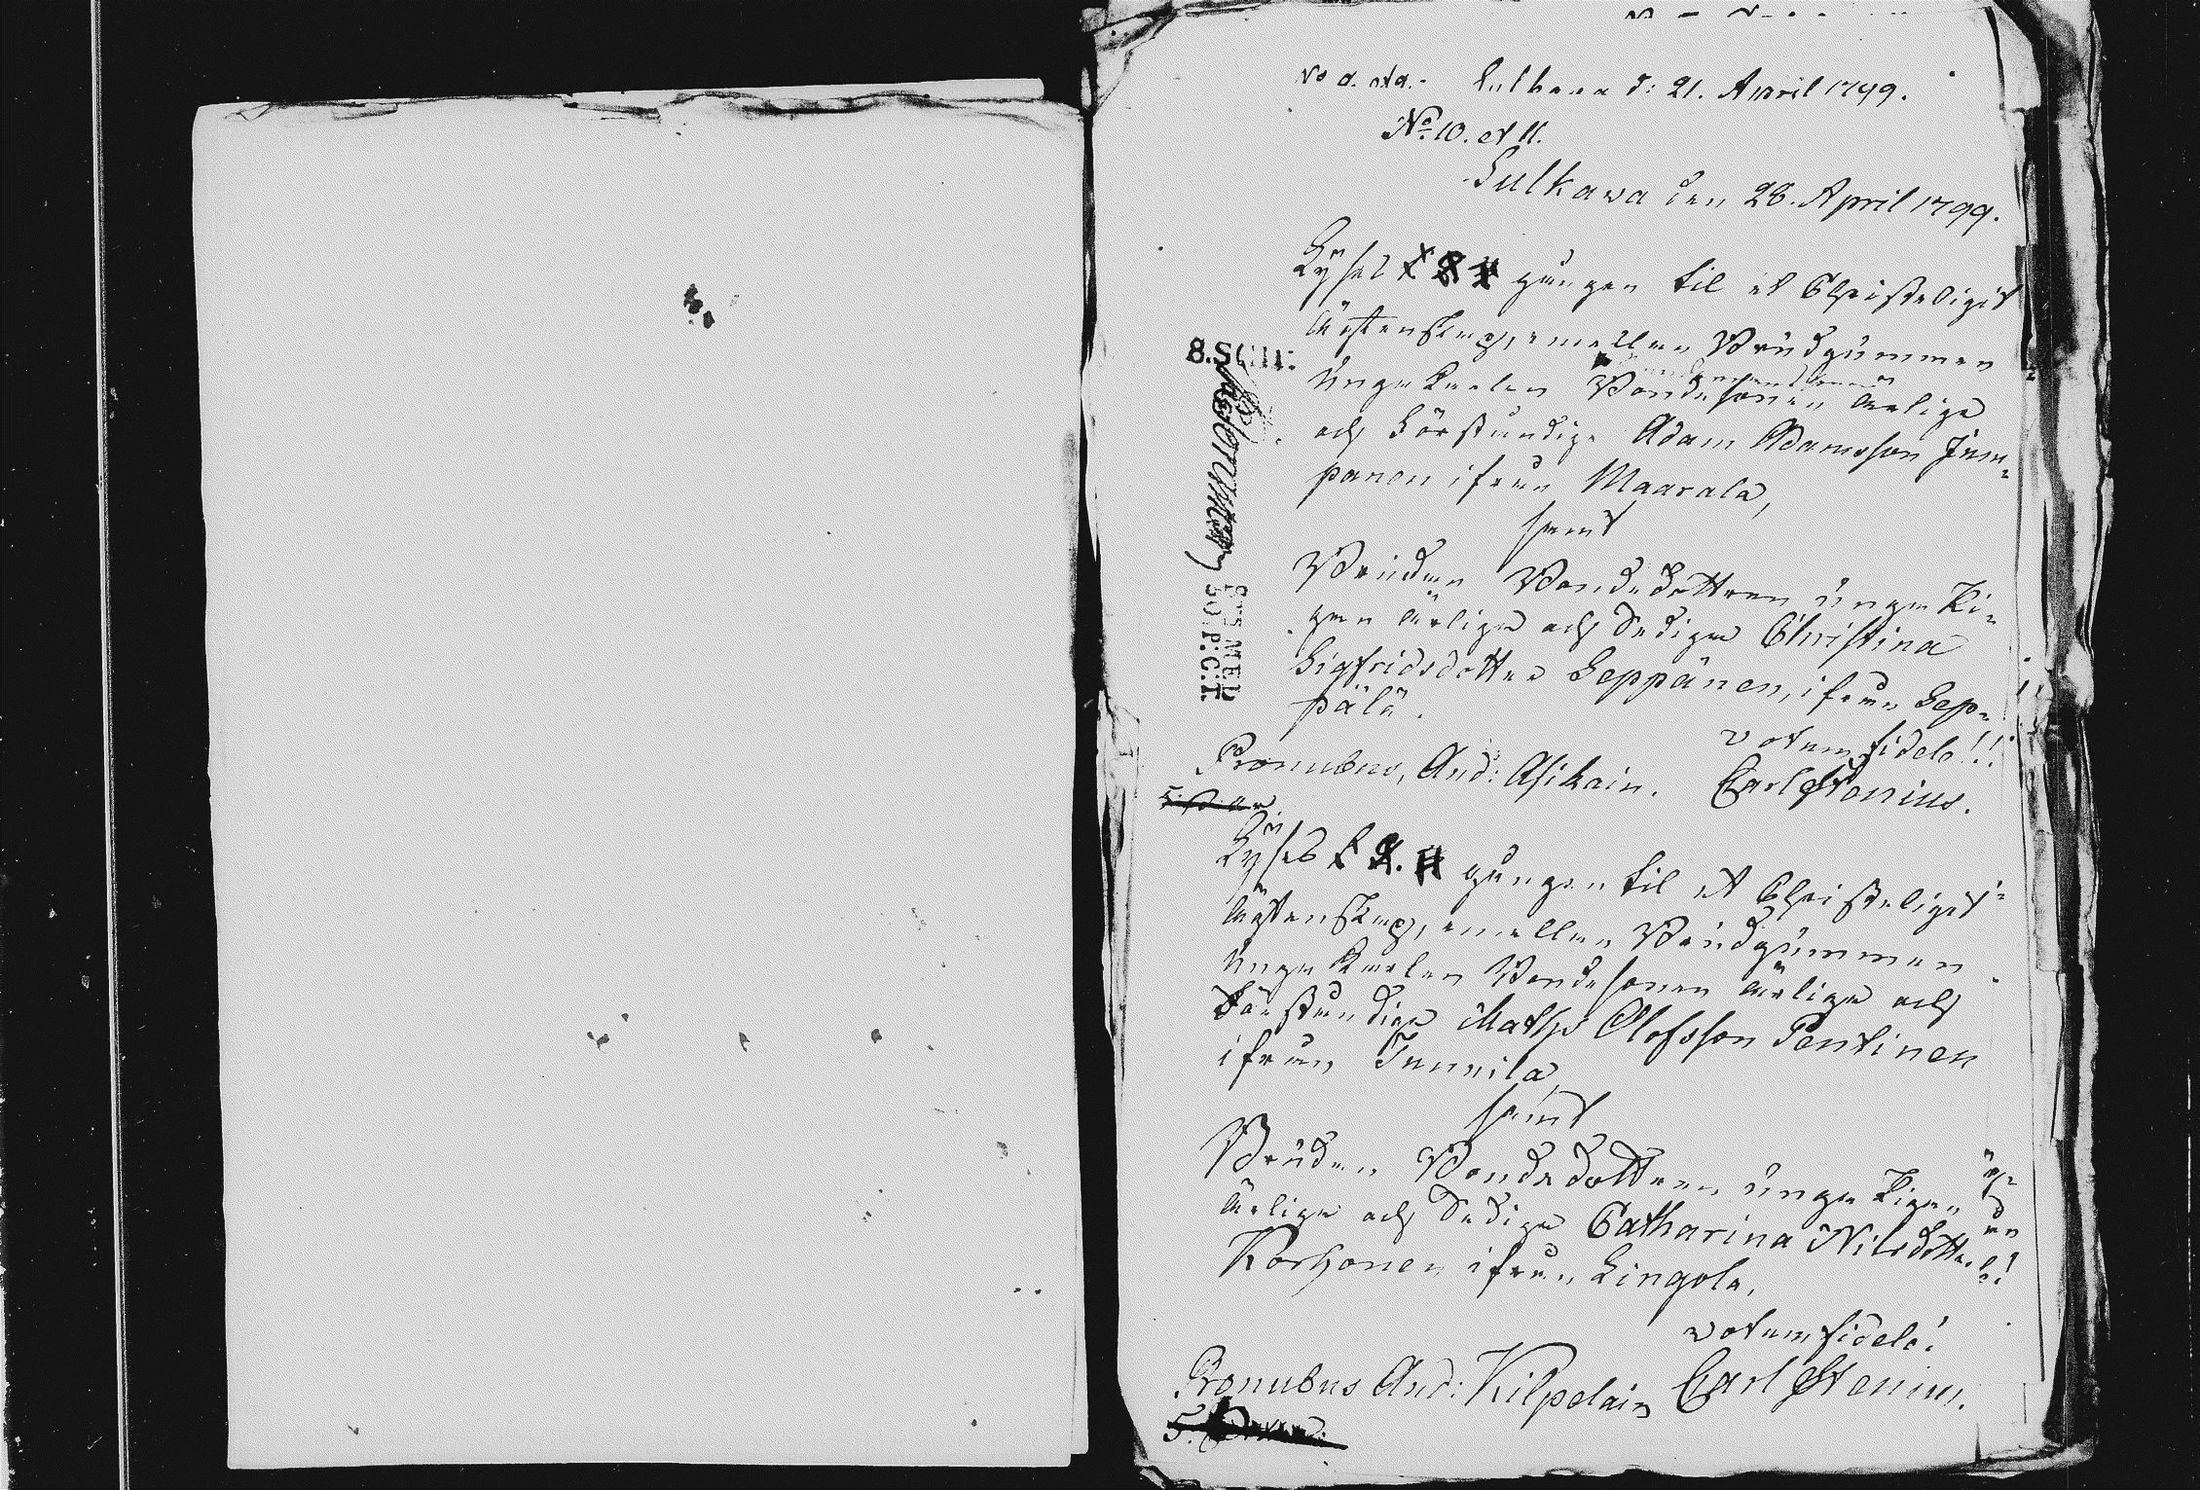 Sulkava d: 21. April 1799.
No. 10. et 11.
Sulkava den 28. April 1799.
Lyses gången til et Christeligit
ägtenskap, emellan Brudgummen
unga Karlen Bondesonen ärlige
och Förståndige Adam Adamsson Jum=
panen ifrån Maarala,
samt
Bruden Bondedottren unga Pi=
gan ärliga och Sediga Christina
Sigfridsdotter Seppänen, ifrån Sep=
pälä.
votum fidele!!!
Pronubus, And: Asikain. Carl Stenius.
Lyses gången til et Christeligit
ägtenskap, emellan Brudgummen
unga Karlen Bondesonen ärlige och
Förståndige Maths Olofsson Pentinen
ifrån Tunnila
samt
Bruden Bondedottren unga Pigan
ärliga och Sediga Catharina Nilsdotter
Korhonen ifrån Lingola.
votum fidele!
Pronubus And: Kilpelain Carl Stenius.
8. SCHF.
50. P.C.T.